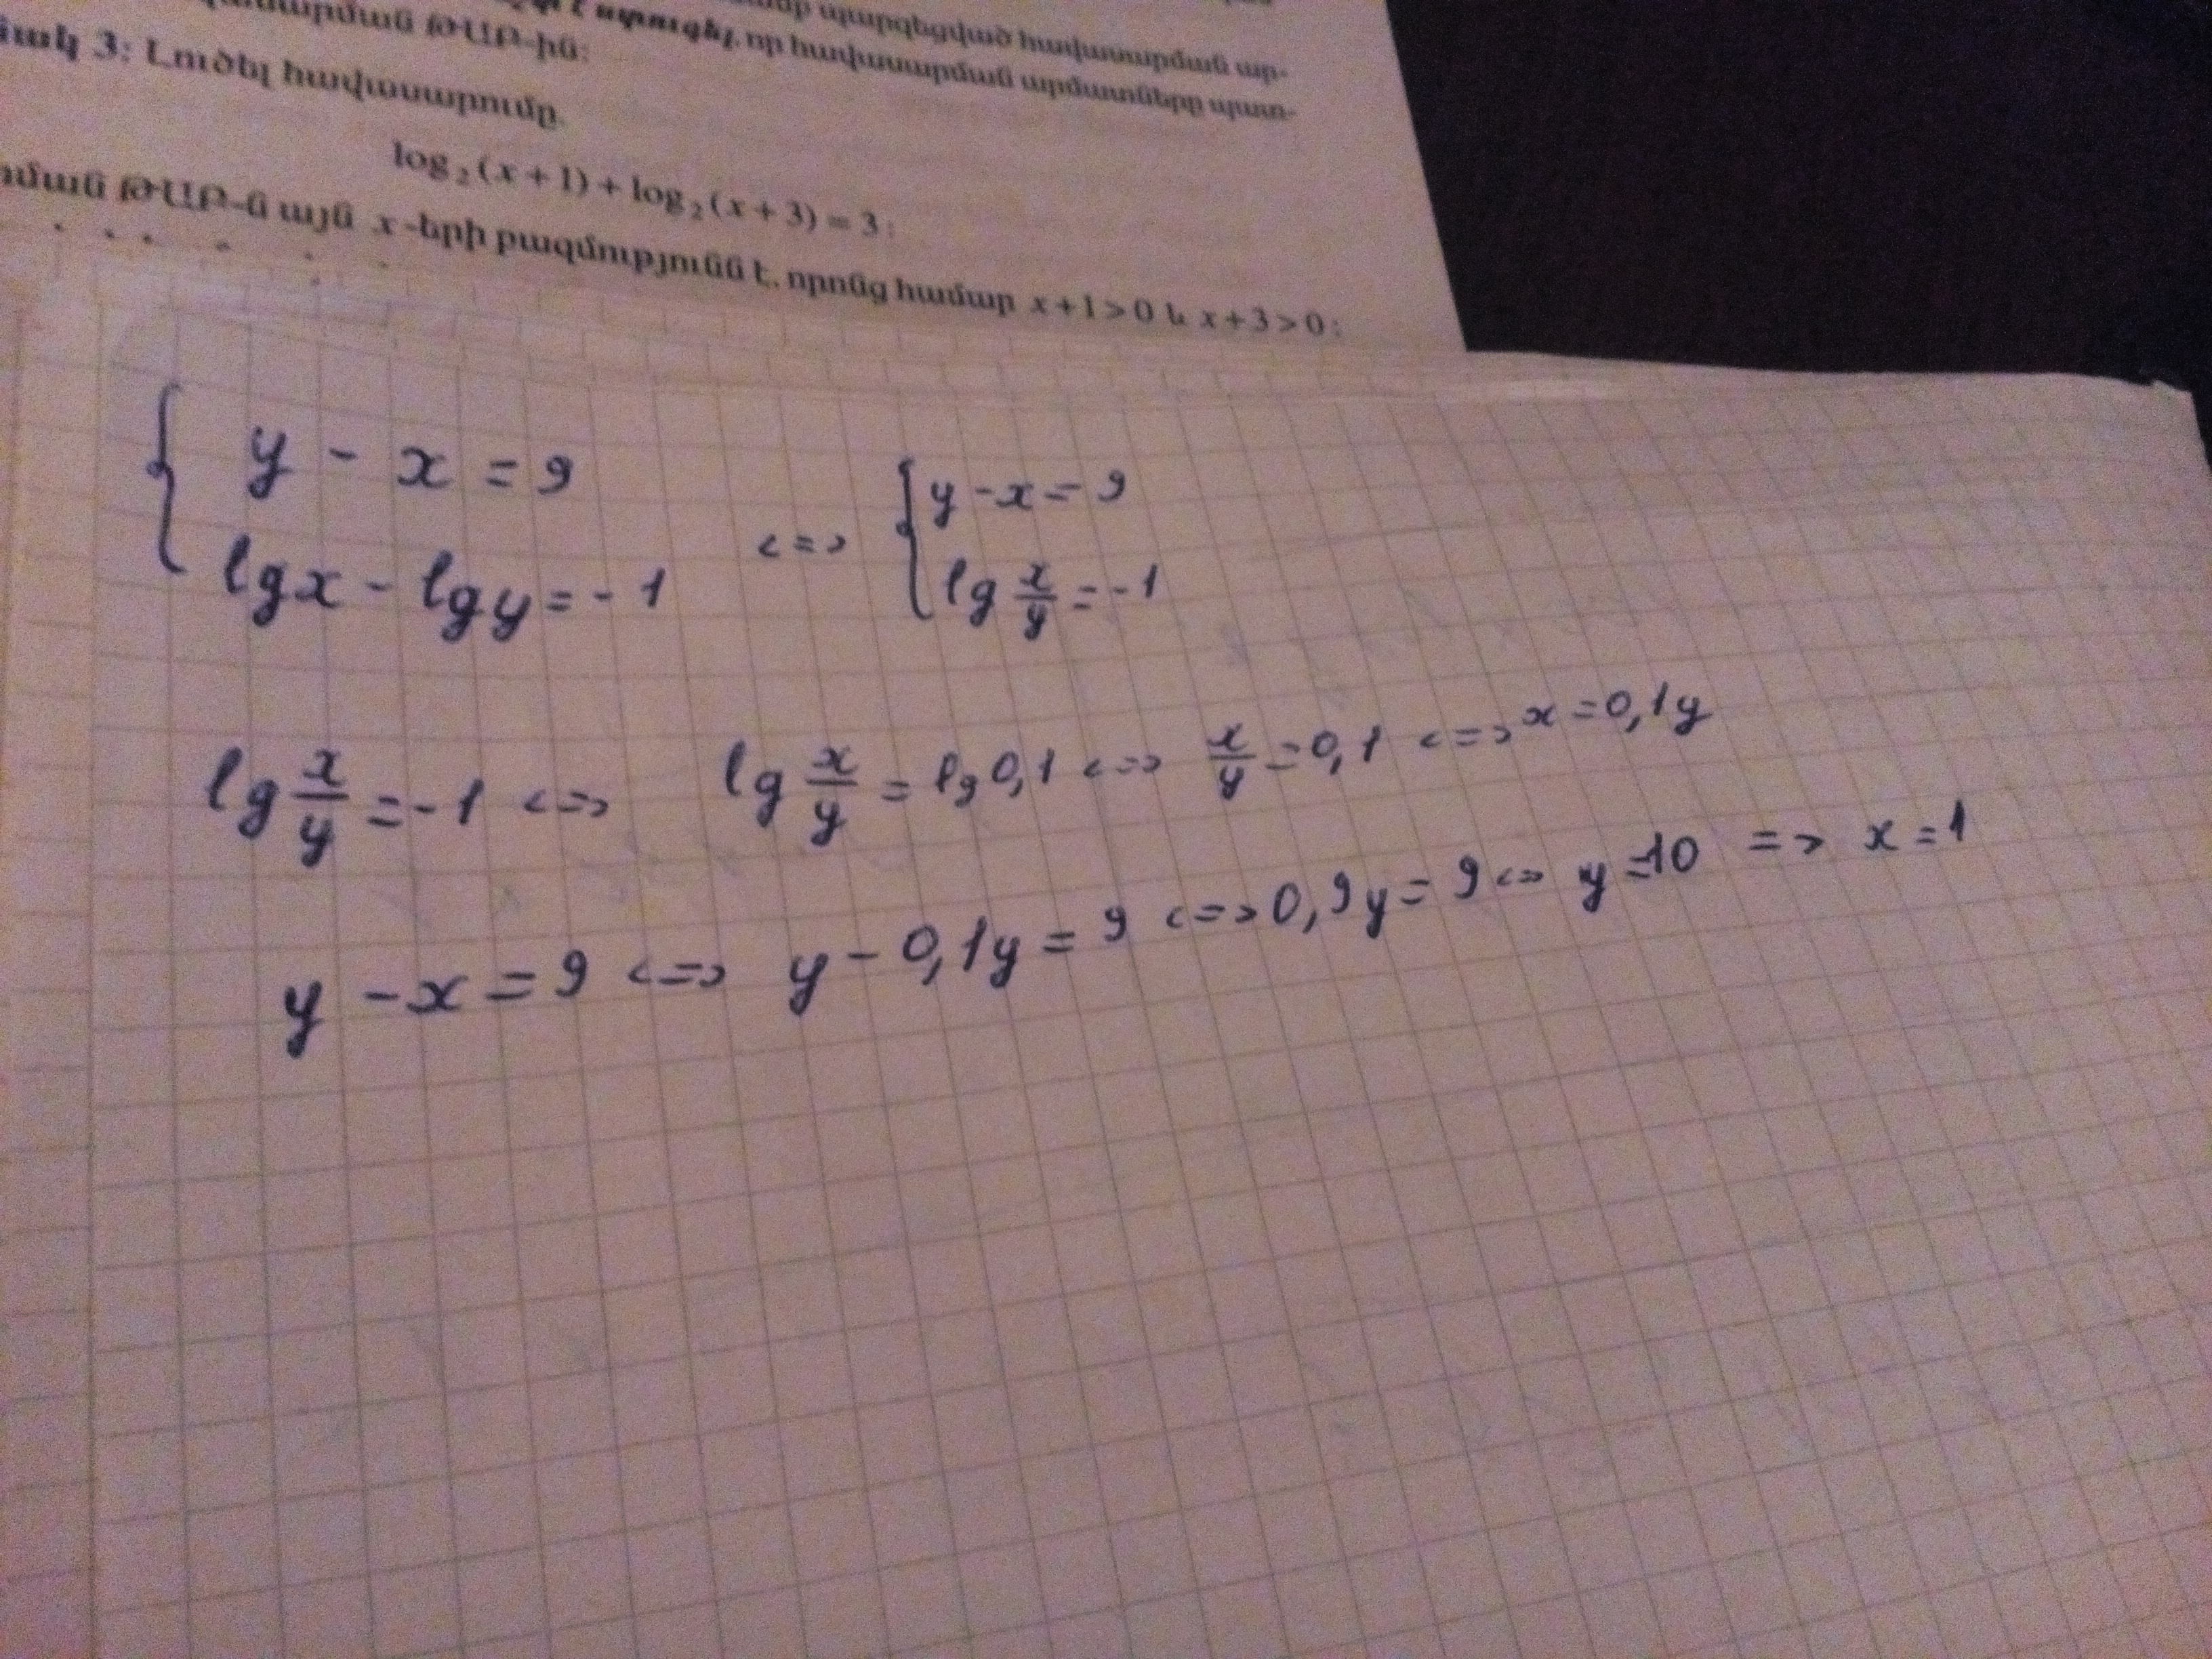 պարզեցված հավասարման ար-
է ստուգել, որ հավասարման արմատները պատ-
ԹԱԲ-ին:
3: Լուծել հավասարումը.
log₂(x + 1) + log₂(x + 3) = 3:
ԹԱԲ-ն այն x-երի բազմությունն է, որոնց համար x + 1 > 0 և x + 3 > 0:
{ y - x = 9 <=> { y - x = 9
lgx - lgy = -1 lg x/y = -1
lg x/y = -1 <=> lg x/y = lg 0,1 <=> x/y = 0,1 <=> x = 0,1y
y - x = 9 <=> y - 0,1y = 9 <=> 0,9y = 9 <=> y = 10 => x = 1